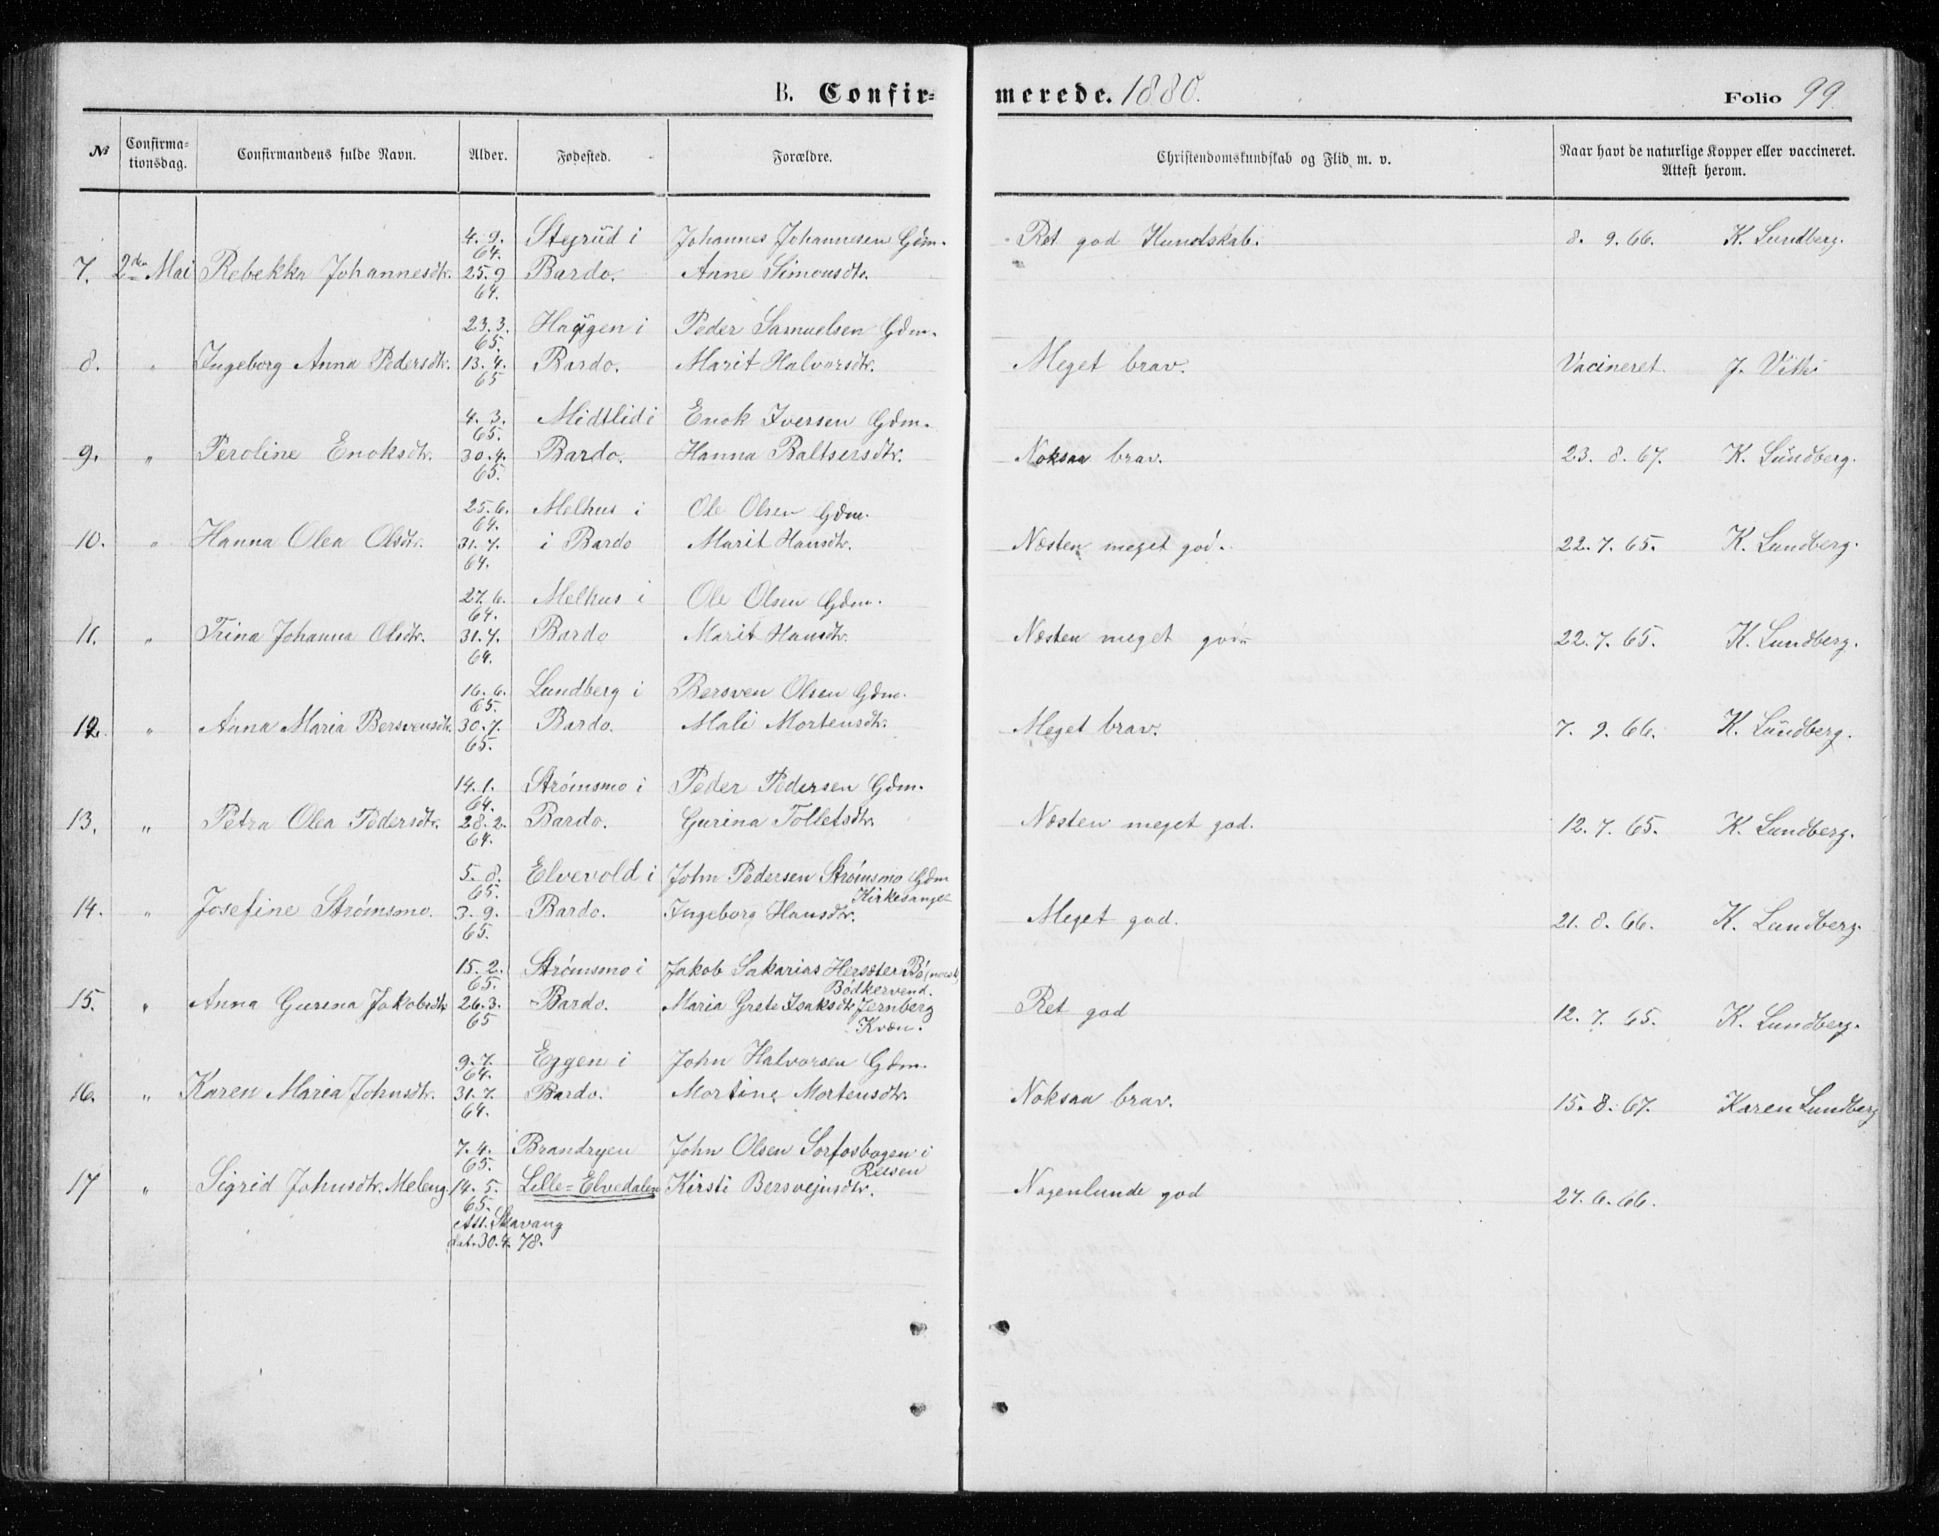 B. Confir= merede. 1880. Folio 99
№ Confirma=tionsdag. Confirmandens fulde Navn. Alder. Fødested. Forældre. Christendomskundskab og Flid m. v. Naar havt de naturlige Kopper eller vaccineret. Attest herom.
4. 9. 64. Stejrud i Johannes Johannesen Gdm. Ret god Kundskab. 8. 9. 66. K. Lundberg.
7. 2den Mai Rebekka Johannesdtr. 25. 9 64. Bardo. Anne Simonsdtr.
23. 3. 65. Haugen i Peder Samuelsen Gdm.
8. " Ingeborg Anna Pedersdtr. 13. 4. 65 Bardo. Marit Halvorsdtr. Meget brav. Vacineret. J. Veth
4. 3. 65. Midtlid i Enok Iversen Gdm.
9. " Peroline Enoksdtr. 30. 4. 65. Bardo. Hanna Baltsersdtr. Noksaa brav. 23. 8. 67. K. Lundberg.
25. 6. 64. Melhus i Ole Olsen Gdm.
10. " Hanna Olea Olsdtr. 31. 7. 64. i Bardo Marit Hansdtr. Næsten meget god. 22. 7. 65. K. Lundberg.
27. 6. 64. Melhus i Ole Olsen Gdm.
11. " Trina Johanna Olsdtr. 31. 7. 64. Bardo Marit Hansdtr. Næsten meget god. 22. 7. 65. K. Lundberg.
16. 6. 65. Lundberg i Bersven Olsen Gdm.
12. " Anna Maria Bersvensdtr. 30. 7. 65. Bardo. Mali Mortensdtr. Meget brav. 7. 9. 66. K. Lundberg.
14. 1. 64. Strømsmo i Peder Pedersen Gdm.
13. " Petra Olea Pedersdtr. 28. 2. 64. Bardo. Gurina Tolletsdtr. Næsten meget god. 12. 7. 65. K. Lundberg.
5. 8. 65. Elvevold i John Pedersen Strømsmo Gdm Kirkesanger
14. " Josefine Strømsmo. 3. 9. 65. Bardo. Ingeborg Hansdtr. Meget god. 21. 8. 66. K. Lundberg.
15. 2. 65. Strømsmo i Jakob Sakarias Bødkersvend.
15. " Anna Gurina Jakobsdtr. 26. 3. 65 Bardo. Maria Grete Isaksdtr. Jernberg Kvæn. Ret god 12. 7. 65. K. Lundberg.
9. 7. 64. Eggen i John Halvorsen Gdm.
16. " Karen Maria Johnsdtr. 31. 7. 64. Bardo. Mortine Mortensdtr. Noksaa brav. 15. 8. 67. Karen Lundberg
7. 4. 65. Brandryen John Olsen Sorfosbogen i Reisen
17 " Sigrid Johnsdtr. Meleng. 14. 5. 65. Lille=Elvedalen Kirsti Bersvejnsdtr. Nogenlunde god 27. 6. 66.
Att. Skavang
dat. 30. 4. 78.